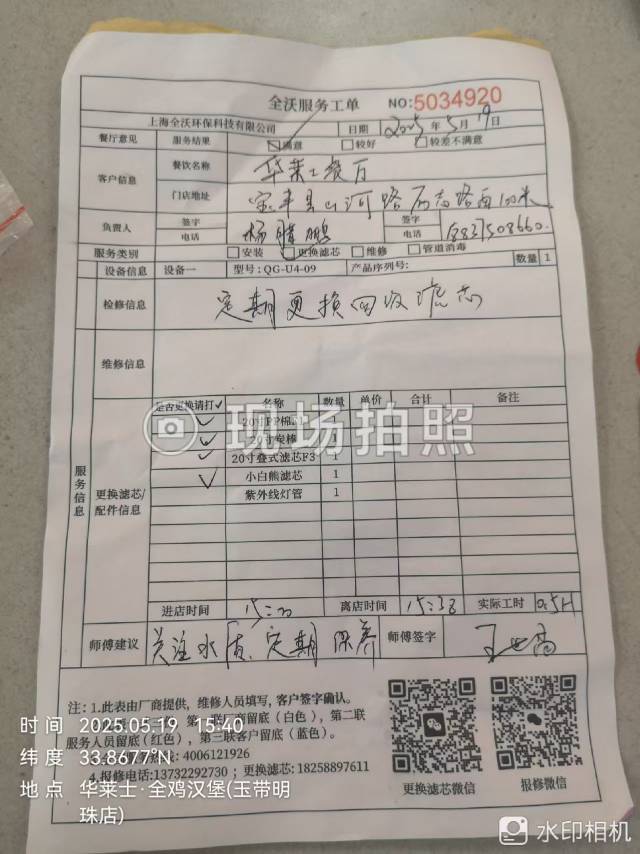 全沃服务工单 NO:5034920
上海全沃环保科技有限公司 日期 2025年5月19日
餐厅意见 服务结果 满意 较好 较差不满意
客户信息 餐饮名称 华莱士餐厅
门店地址 宝丰县山河路 路西100米
负责人 签字 电话 杨腊鹏 签字 电话
服务类别 安装 更换滤芯 维修 管道消毒
设备信息 设备一 型号:QG-U4-09 产品序列号: 数量 1
检修信息 定期更换回收滤芯
维修信息
服务信息
更换滤芯/配件信息
是否更换请打✓ 名称 数量 单价 合计 备注
✓ 20寸PP棉
✓ 20寸炭棒
✓ 20寸叠式滤芯F3 1
✓ 小白熊滤芯 1
紫外线灯管 1
现场拍照
进店时间 离店时间 15:33 实际工时 0.5H
师傅建议 关注水质、定期保养 师傅签字
注:1.此表由厂商提供,维修人员填写,客户签字确认。
联 留底(白色),第二联
服务人员留底(红色),第三联客户留底(蓝色)。
4006121926
4.报修电话:13732292730;更换滤芯:18258897611
更换滤芯微信 报修微信
时间 2025.05.19 15:40
纬度 33.8677°N
地点 华莱士·全鸡汉堡(玉带明
珠店)
水印相机